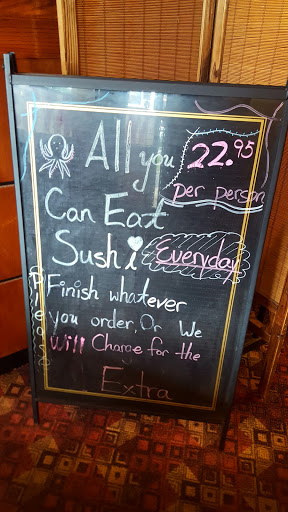 All you
22.95
per person
Can Eat
Sushi Everyday
Please
Finish whatever
you order, Or We
Will Charge for the
Extra